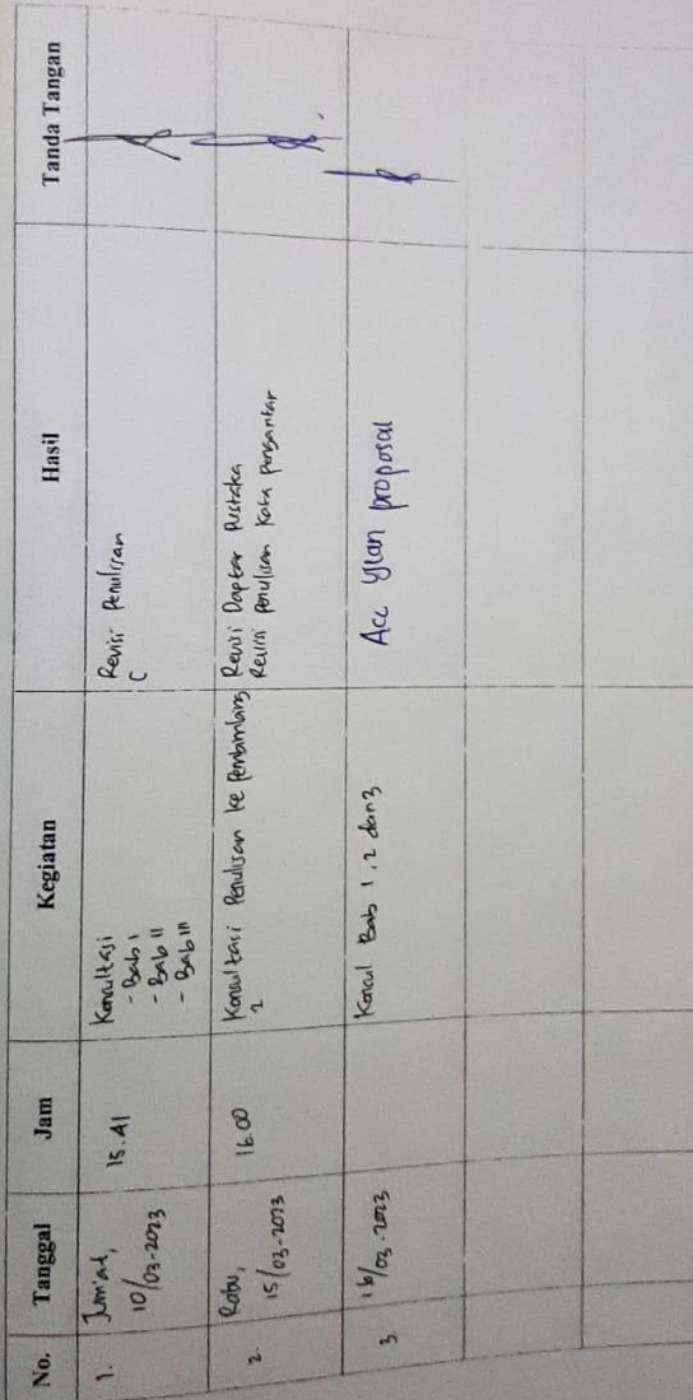 No. Tanggal Jam Kegiatan Hasil Tanda Tangan
1. Jum'at, 10/03-2023 15.41 Konsultasi
- Bab I
- Bab II
- Bab III
Revisi Penulisan
2. Rabu, 15/03-2023 16.00 Konsultasi Penulisan ke Pembimbing
2
Revisi Daptar Pustaka
Revisi Penulisan Kata Pengantar
3. 16/03-2023 Konsul Bab 1, 2 dan 3
Acc ujian proposal